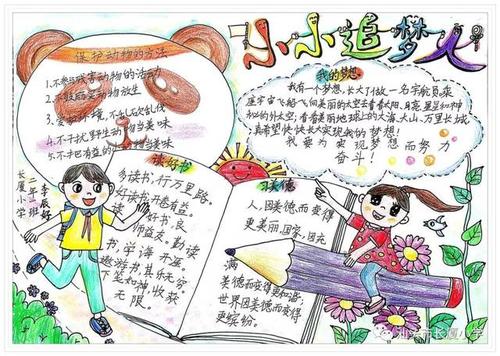 小小追梦人
保护动物的方法
1.不参与残害动物的活动
3.爱护环境,不乱砍乱伐
4.不干扰野生动物当美味
5.不把有益的
长厦小学
二年二班
李辰好
我的梦想
我有一个梦想,长大了做一名宇航员,乘
座宇宙飞船飞向美丽的太空去看看太阳、月亮、星星和神
秘的外太空,看看美丽地球上的大海、大山、万里长城
真希望快快长大实现我的梦想!
我要为实现梦想而努力
奋斗!
读好书
多读书,行万里路,
好读书,开卷有益。
读好书,良
师益友。勤读
书,学海无涯。
遨游书,其乐无穷
下笔如神收获
无限。
习美德
人,因美德而变得
更美丽,国家,因充
满
美德而变得更和谐;
世界因美德而变得
更缤纷。
汕头市长厦小学